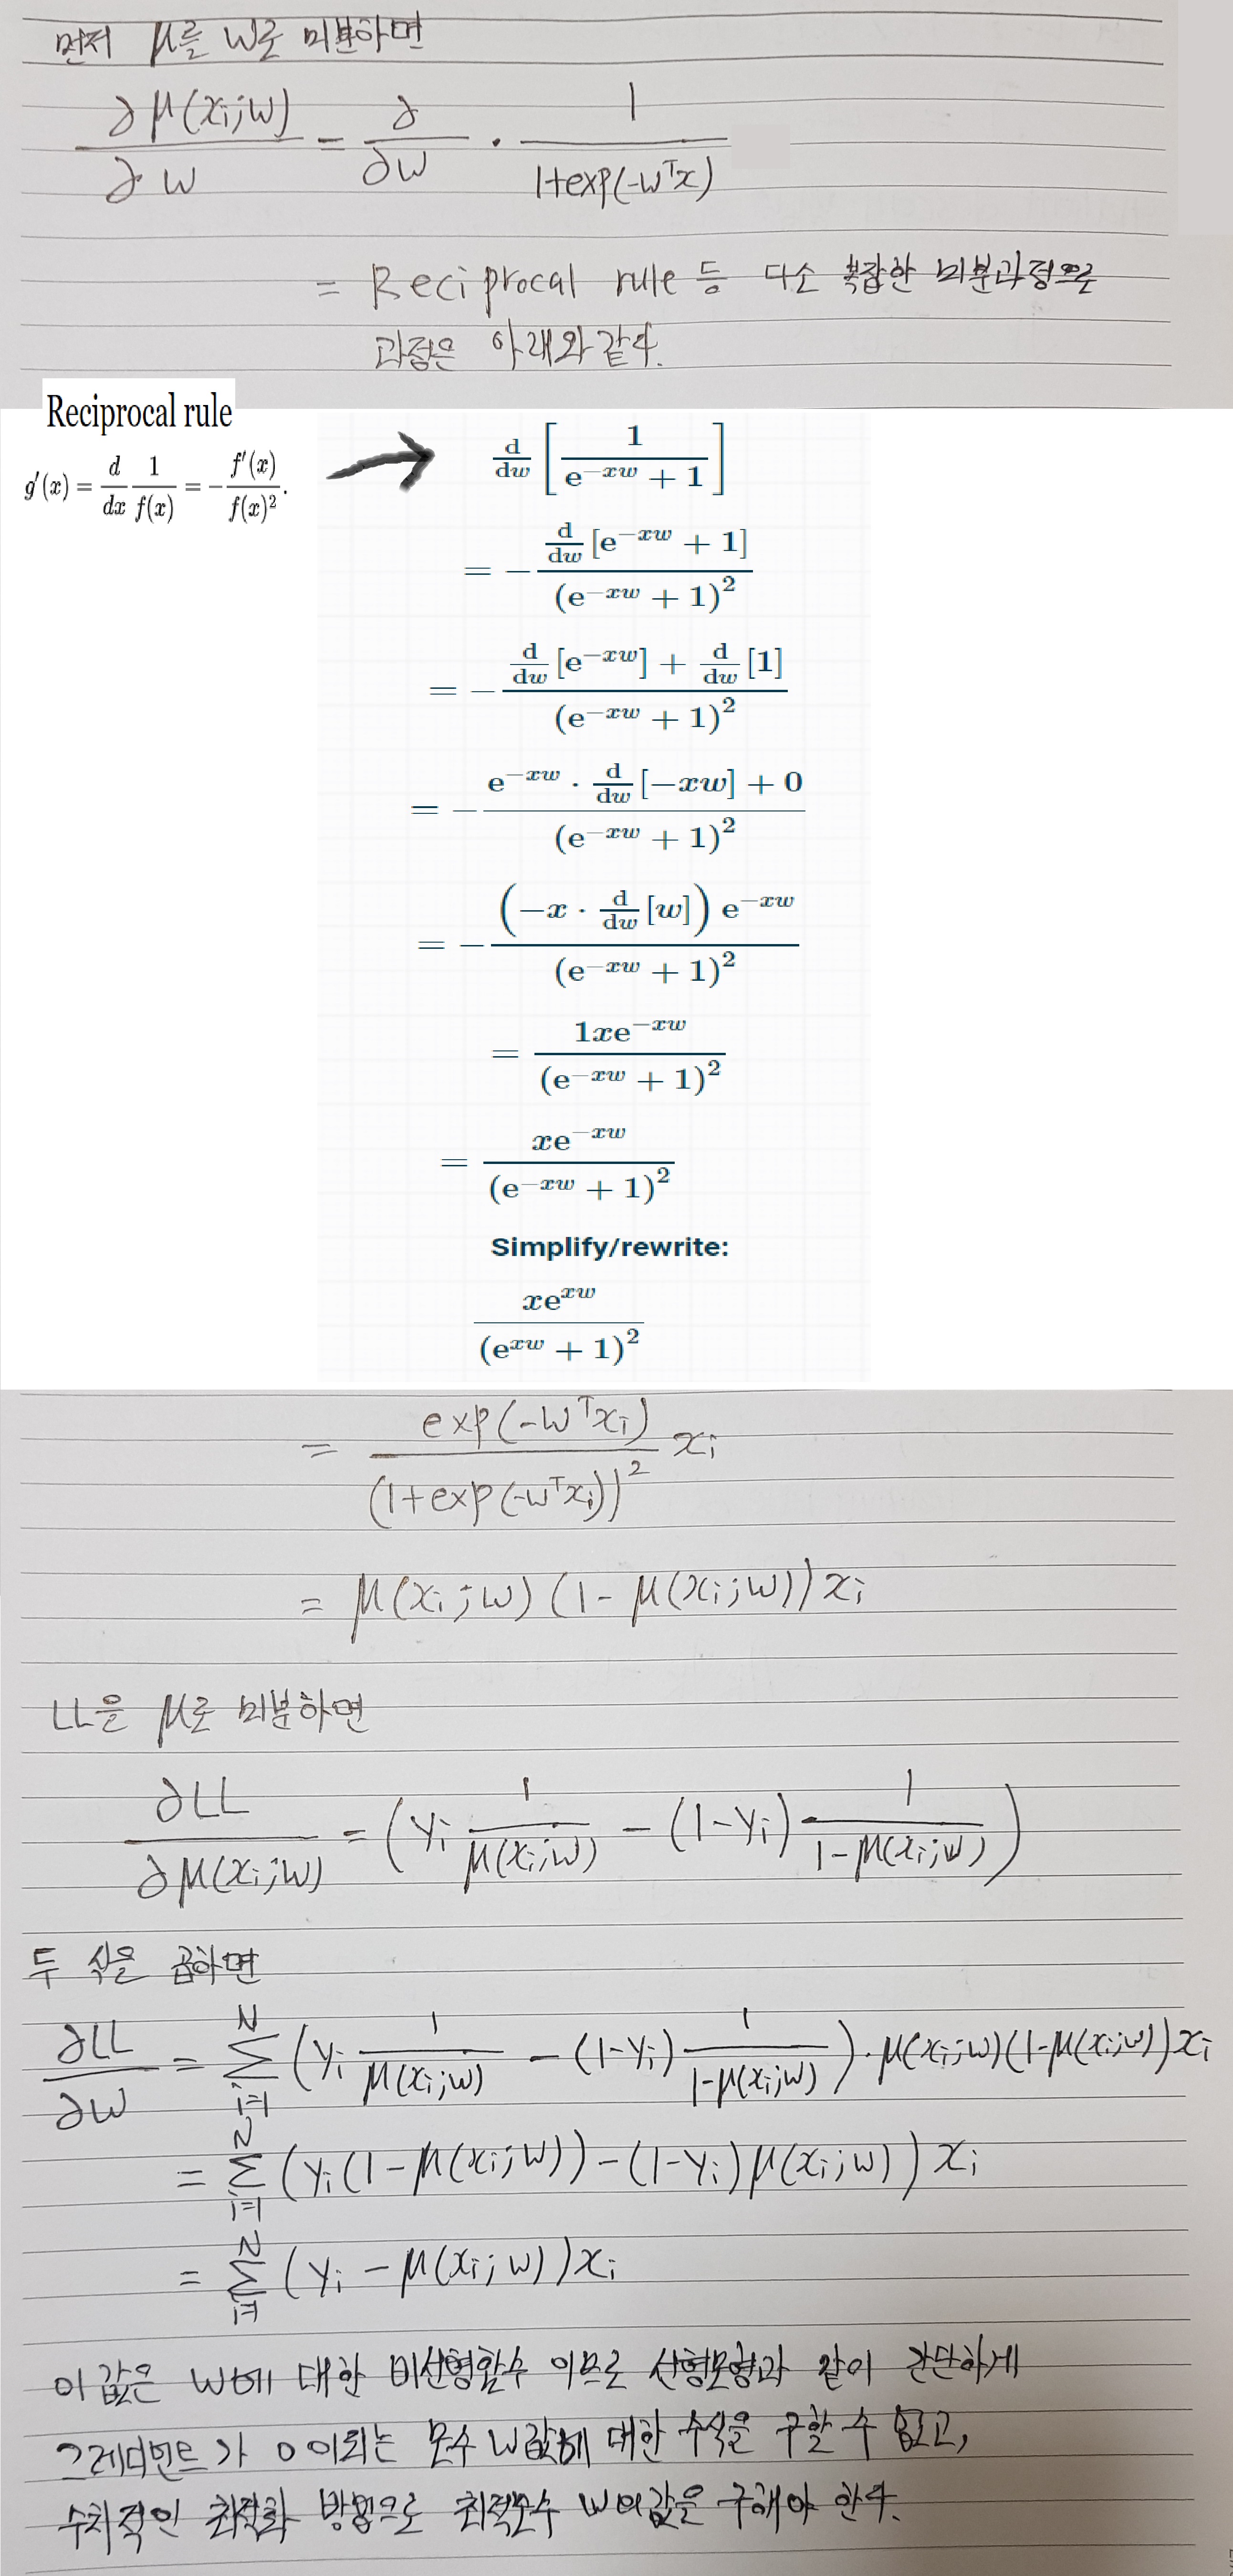 먼저 μ를 w로 미분하면
∂μ(xᵢ;w)/∂w = ∂/∂w · 1/(1+exp(-wᵀx))
= Reciprocal rule 등 다소 복잡한 미분과정으로
과정은 아래와 같다.
Reciprocal rule
g′(x) = d/dx 1/f(x) = -f′(x)/f(x)².
d/dw [1/(e^(-xw) + 1)]
= - (d/dw [e^(-xw) + 1])/(e^(-xw) + 1)²
= - (d/dw [e^(-xw)] + d/dw [1])/(e^(-xw) + 1)²
= - (e^(-xw) · d/dw [-xw] + 0)/(e^(-xw) + 1)²
= - ((-x · d/dw [w]) e^(-xw))/(e^(-xw) + 1)²
= 1xe^(-xw)/(e^(-xw) + 1)²
= xe^(-xw)/(e^(-xw) + 1)²
Simplify/rewrite:
xe^(xw)/(e^(xw) + 1)²
= exp(-wᵀxᵢ)/(1+exp(-wᵀxᵢ))² xᵢ
= μ(xᵢ;w)(1-μ(xᵢ;w))xᵢ
LL을 μ로 미분하면
∂LL/∂μ(xᵢ;w) = (yᵢ 1/μ(xᵢ;w) - (1-yᵢ) 1/(1-μ(xᵢ;w)))
두 식을 곱하면
∂LL/∂w = Σ_{i=1}^{N} (yᵢ 1/μ(xᵢ;w) - (1-yᵢ) 1/(1-μ(xᵢ;w))) · μ(xᵢ;w)(1-μ(xᵢ;w))xᵢ
= Σ_{i=1}^{N} (yᵢ(1-μ(xᵢ;w)) - (1-yᵢ)μ(xᵢ;w)) xᵢ
= Σ_{i=1}^{N} (yᵢ - μ(xᵢ;w))xᵢ
이 값은 w에 대한 비선형함수 이므로 선형모형과 같이 간단하게
그레디언트가 0이되는 모수 w값에 대한 수식을 구할 수 없고,
수치적인 최적화 방법으로 최적모수 w의값을 구해야 한다.